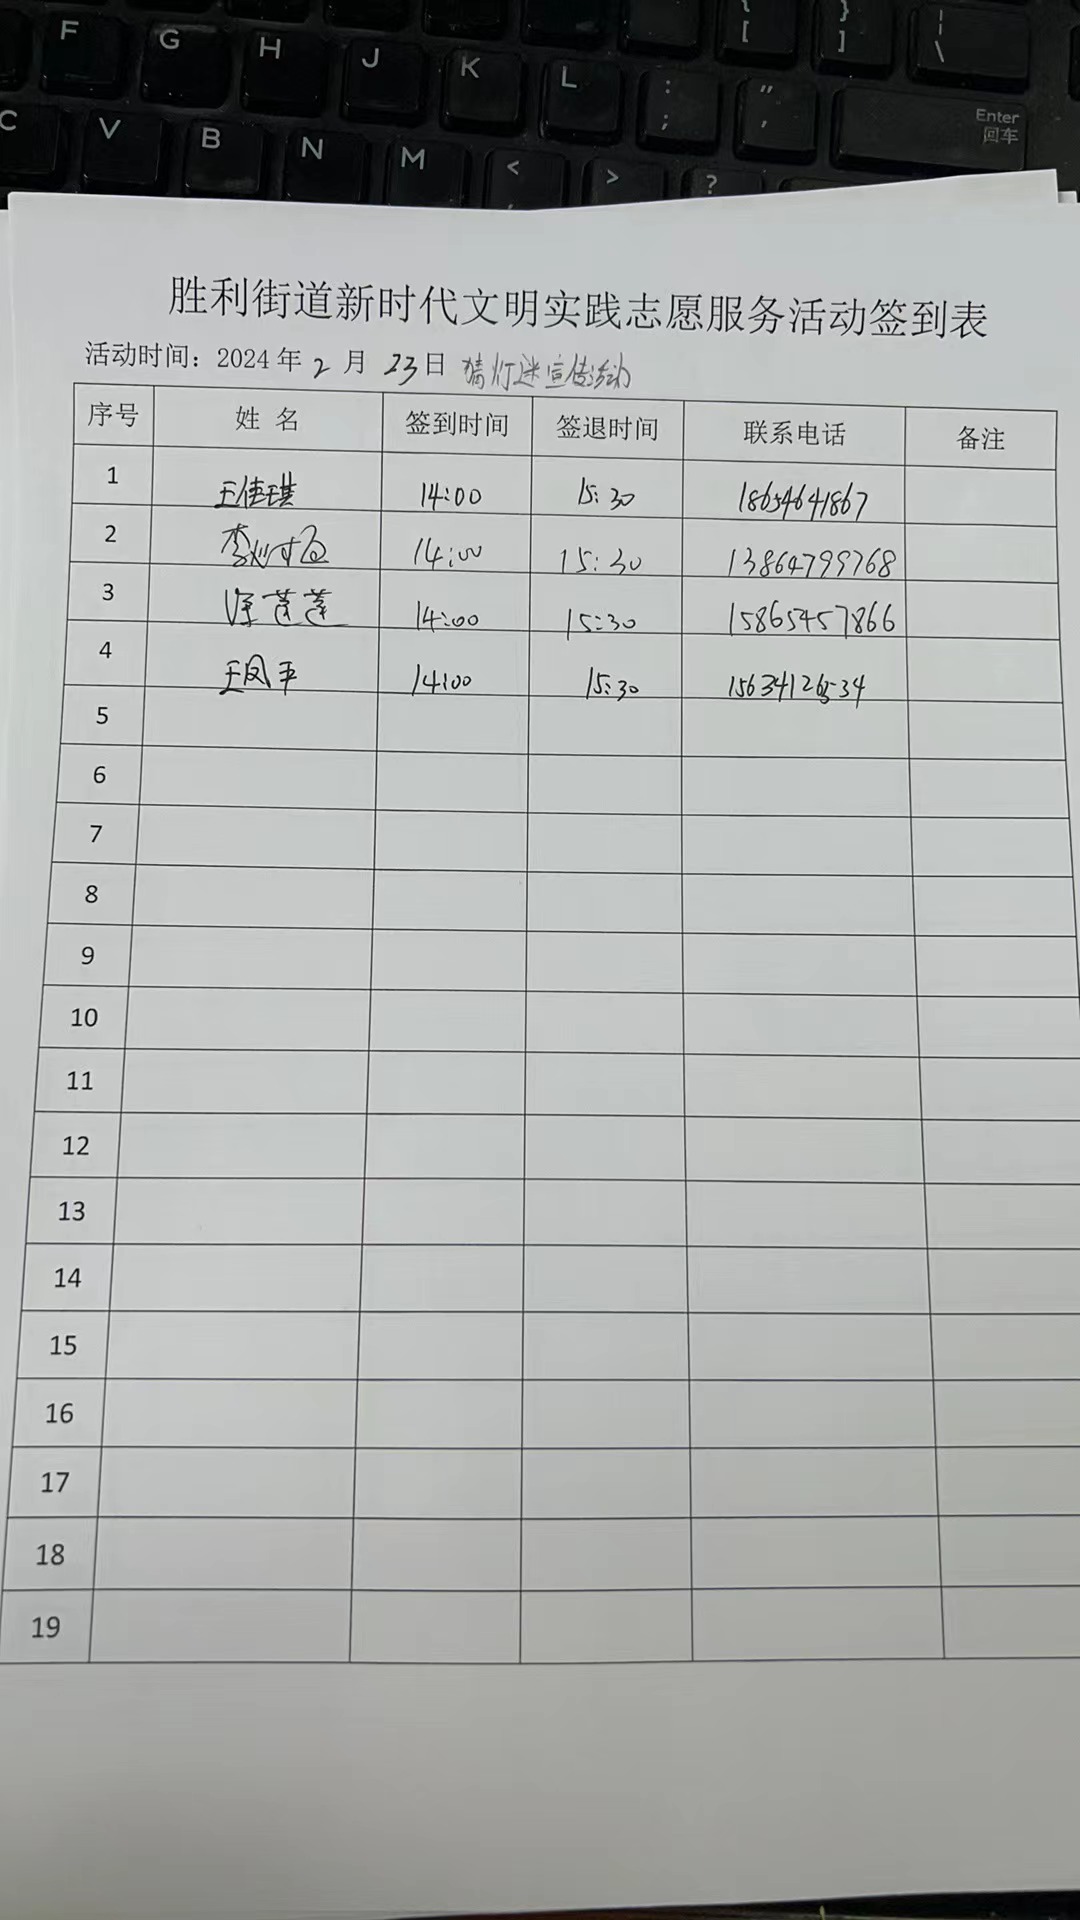 F G H J K L : ; " , Enter 回车
{ [ } ] | \
C V B N M < , > ?
胜利街道新时代文明实践志愿服务活动签到表
活动时间：2024 年 2 月 23 日 猜灯迷宣传活动
序号 姓 名 签到时间 签退时间 联系电话 备注
1 王佳琪 14:00 15:30 18654641867
2 李 14:00 15:30 13864799768
3 徐莲莲 14:00 15:30 15865457866
4 王凤平 14:00 15:30 15634126534
5
6
7
8
9
10
11
12
13
14
15
16
17
18
19